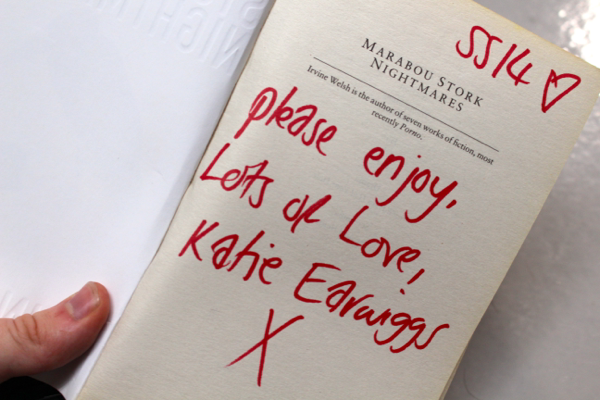 SS14
MARABOU STORK
NIGHTMARES
Irvine Welsh is the author of seven works of fiction, most
recently Porno.
please enjoy,
Lots of Love!
Katie Earwiggs
X